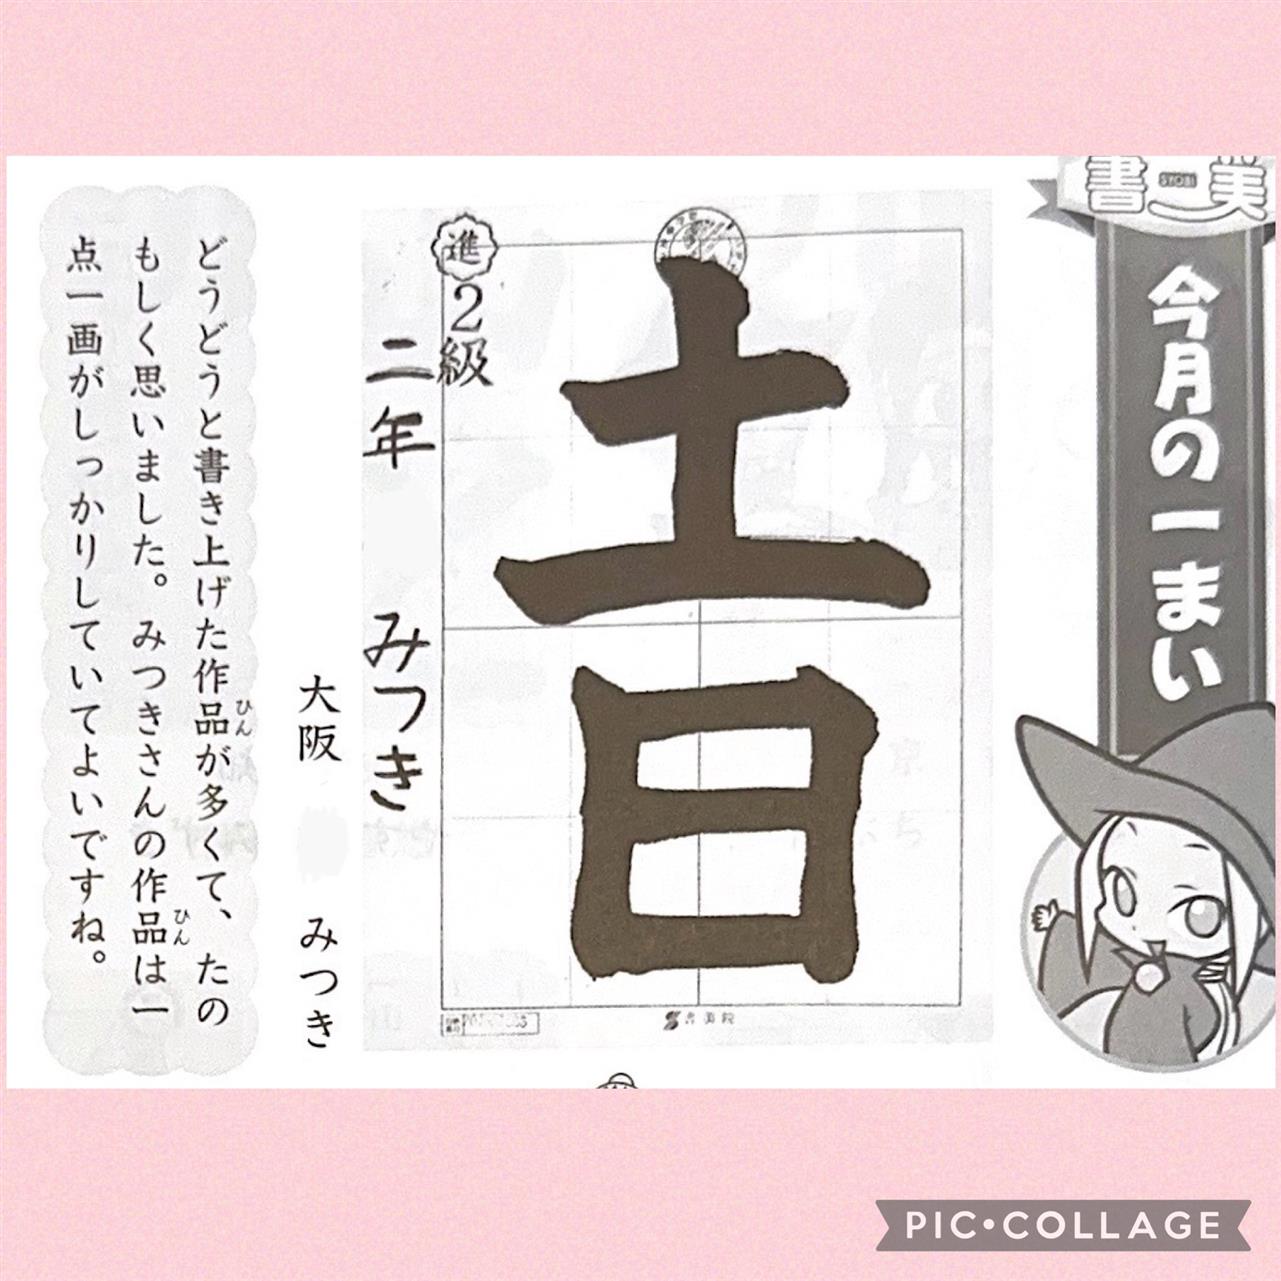 書美
SYOBI
今月の一まい
土日
進
2級
二年 みつき
書美院
大阪 みつき
どうどうと書き上げた作品が多くて、たの
ひん
もしく思いました。みつきさんの作品は一
ひん
点一画がしっかりしていてよいですね。
PIC•COLLAGE